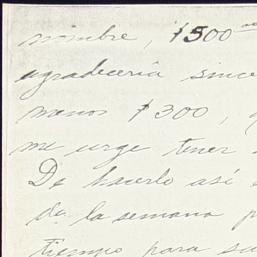 nombre, $500
agradecería since
menos $300,
me urge tener
De hacerlo así
de la semana p
tiempo para su